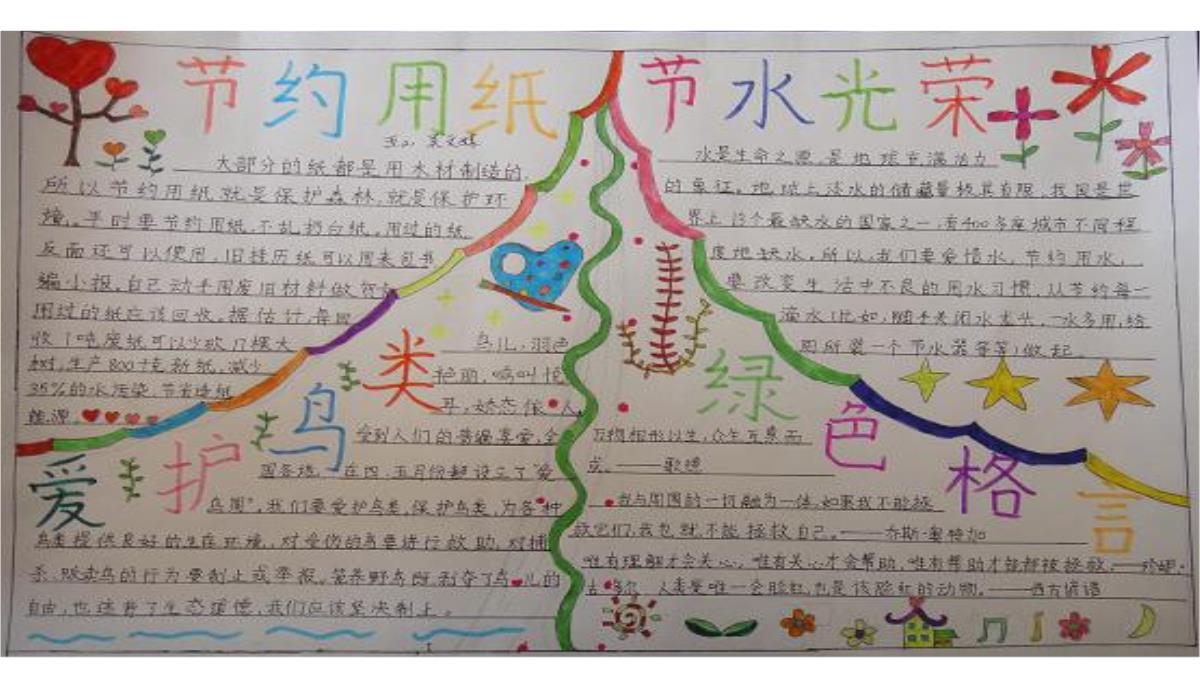 节约用纸
大部分的纸都是用木材制造的,
所以节约用纸就是保护森林,就是保护环
境。平时要节约用纸,不乱扔白纸。用过的纸
反面还可以使用,旧挂历纸可以用来包书
编小报,自己动手用废旧材料做贺
用过的纸应该回收。据估计,每回
收1吨废纸可以少砍17棵大
树,生产800千克新纸,减少
35%的水污染,节省造纸
能源。
节水光荣
水是生命之源,是地球充满活力
的象征。地球上淡水的储藏量极其有限,我国是世
界上13个最缺水的国家之一,有400多座城市不同程
度地缺水,所以,我们要爱惜水,节约用水,
要改变生活中不良的用水习惯,从节约每一
滴水(比如,随手关闭水龙头,一水多用,给
厕所装一个节水器等等)做起。
爱护鸟类
鸟儿,羽色
艳丽,鸣叫悦
耳,娇态依人,
受到人们的普遍喜爱,全
国各地,在四、五月份都设立了“爱
鸟周”,我们要爱护鸟类,保护鸟类,为各种
鸟类提供良好的生存环境,对受伤的鸟要进行救助,对捕
杀、贩卖鸟的行为要制止或举报。笼养野鸟既剥夺了鸟儿的
自由,也违背了生态道德,我们应该坚决制止。
绿色格言
万物相形以生,众生互惠而
成。——歌德
我与周围的一切融为一体,如果我不能拯
救它们,我也就不能拯救自己。——乔斯·奥特加
唯有理解才会关心,唯有关心才会帮助,唯有帮助才能都被拯救。——珍妮·
古多尔 人类是唯一会脸红,也是该脸红的动物。——西方谚语